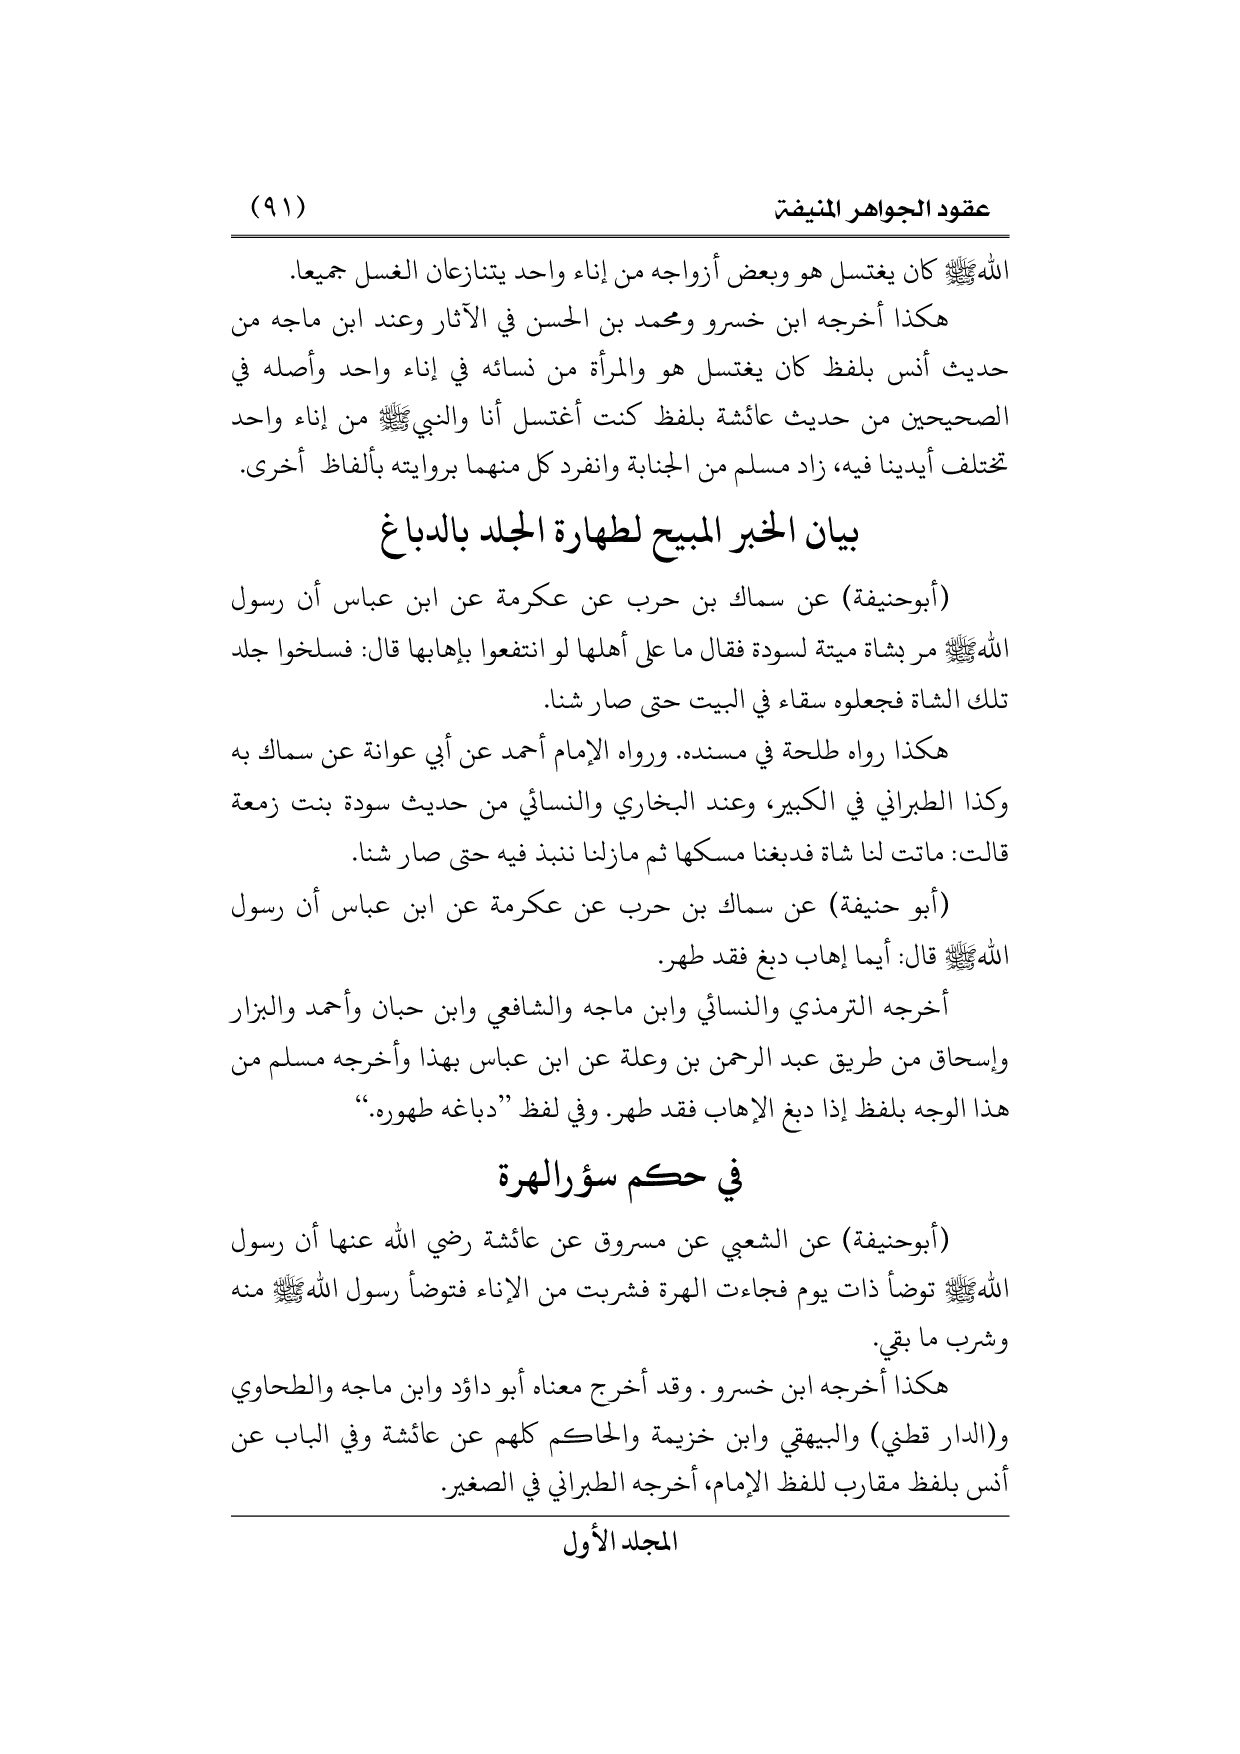 عقود الجواهر المنيفة (٩١)
اللهﷺ كان يغتسل هو وبعض أزواجه من إناء واحد يتنازعان الغسل جميعا.
هكذا أخرجه ابن خسرو ومحمد بن الحسن في الآثار وعند ابن ماجه من
حديث أنس بلفظ كان يغتسل هو والمرأة من نسائه في إناء واحد وأصله في
الصحيحين من حديث عائشة بلفظ كنت أغتسل أنا والنبيﷺ من إناء واحد
تختلف أيدينا فيه، زاد مسلم من الجنابة وانفرد كل منهما بروايته بألفاظ أخرى.
بيان الخبر المبيح لطهارة الجلد بالدباغ
(أبوحنيفة) عن سماك بن حرب عن عكرمة عن ابن عباس أن رسول
اللهﷺ مر بشاة ميتة لسودة فقال ما على أهلها لو انتفعوا بإهابها قال: فسلخوا جلد
تلك الشاة فجعلوه سقاء في البيت حتى صار شنا.
هكذا رواه طلحة في مسنده. ورواه الإمام أحمد عن أبي عوانة عن سماك به
وكذا الطبراني في الكبير، وعند البخاري والنسائي من حديث سودة بنت زمعة
قالت: ماتت لنا شاة فدبغنا مسكها ثم مازلنا ننبذ فيه حتى صار شنا.
(أبو حنيفة) عن سماك بن حرب عن عكرمة عن ابن عباس أن رسول
اللهﷺ قال: أيما إهاب دبغ فقد طهر.
أخرجه الترمذي والنسائي وابن ماجه والشافعي وابن حبان وأحمد والبزار
وإسحاق من طريق عبد الرحمن بن وعلة عن ابن عباس بهذا وأخرجه مسلم من
هذا الوجه بلفظ إذا دبغ الإهاب فقد طهر. وفي لفظ ”دباغه طهوره.“
في حكم سؤرالهرة
(أبوحنيفة) عن الشعبي عن مسروق عن عائشة رضي الله عنها أن رسول
اللهﷺ توضأ ذات يوم فجاءت الهرة فشربت من الإناء فتوضأ رسول اللهﷺ منه
وشرب ما بقي.
هكذا أخرجه ابن خسرو . وقد أخرج معناه أبو داؤد وابن ماجه والطحاوي
و(الدار قطني) والبيهقي وابن خزيمة والحاكم كلهم عن عائشة وفي الباب عن
أنس بلفظ مقارب للفظ الإمام، أخرجه الطبراني في الصغير.
المجلد الأول